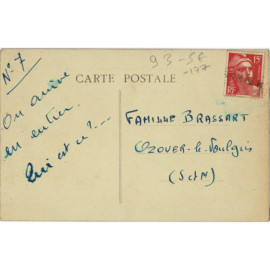 N° 7
93-58
-177
15
RF
CARTE POSTALE
On arrive
en entier.
Qui est ce?...
FAMILLE BRASSART
OZOUER-le-Voulgis
(S&M)